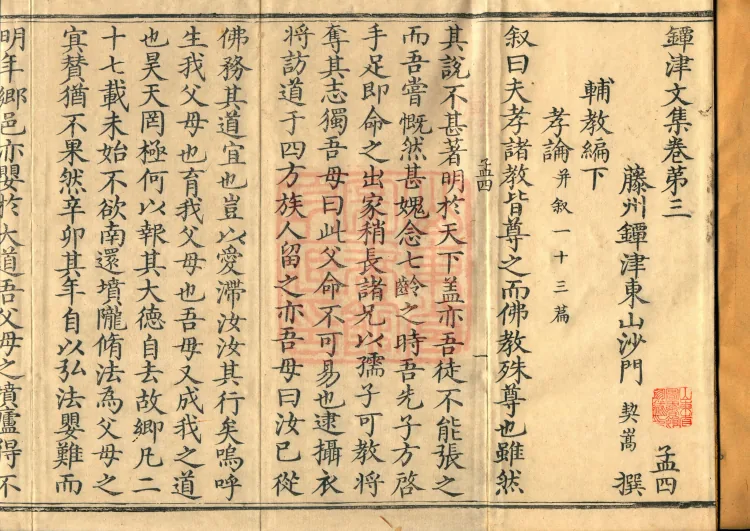 鐔津文集卷第三
孟四
藤州鐔津東山沙門 契嵩 撰
輔教編下
孝論并叙一十三篇
叙曰夫孝諸教皆尊之而佛教殊尊也雖然
孟四
一
其說不甚著明於天下盖亦吾徒不能張之
而吾嘗慨然甚媿念七齡之時吾先子方啓
手足即命之出家稍長諸兄以孺子可教將
奪其志獨吾母曰此父命不可易也逮攝衣
將訪道于四方族人留之亦吾母曰汝已從
佛務其道宜也豈以愛滯汝汝其行矣嗚呼
生我父母也育我父母也吾母又成我之道
也昊天罔極何以報其大德自去故鄉凡二
十七載未始不欲南還墳隴脩法為父母之
寘贊猶不果然辛卯其年自以弘法嬰難而
明年鄉邑亦嬰於大道吾父母之墳廬得不